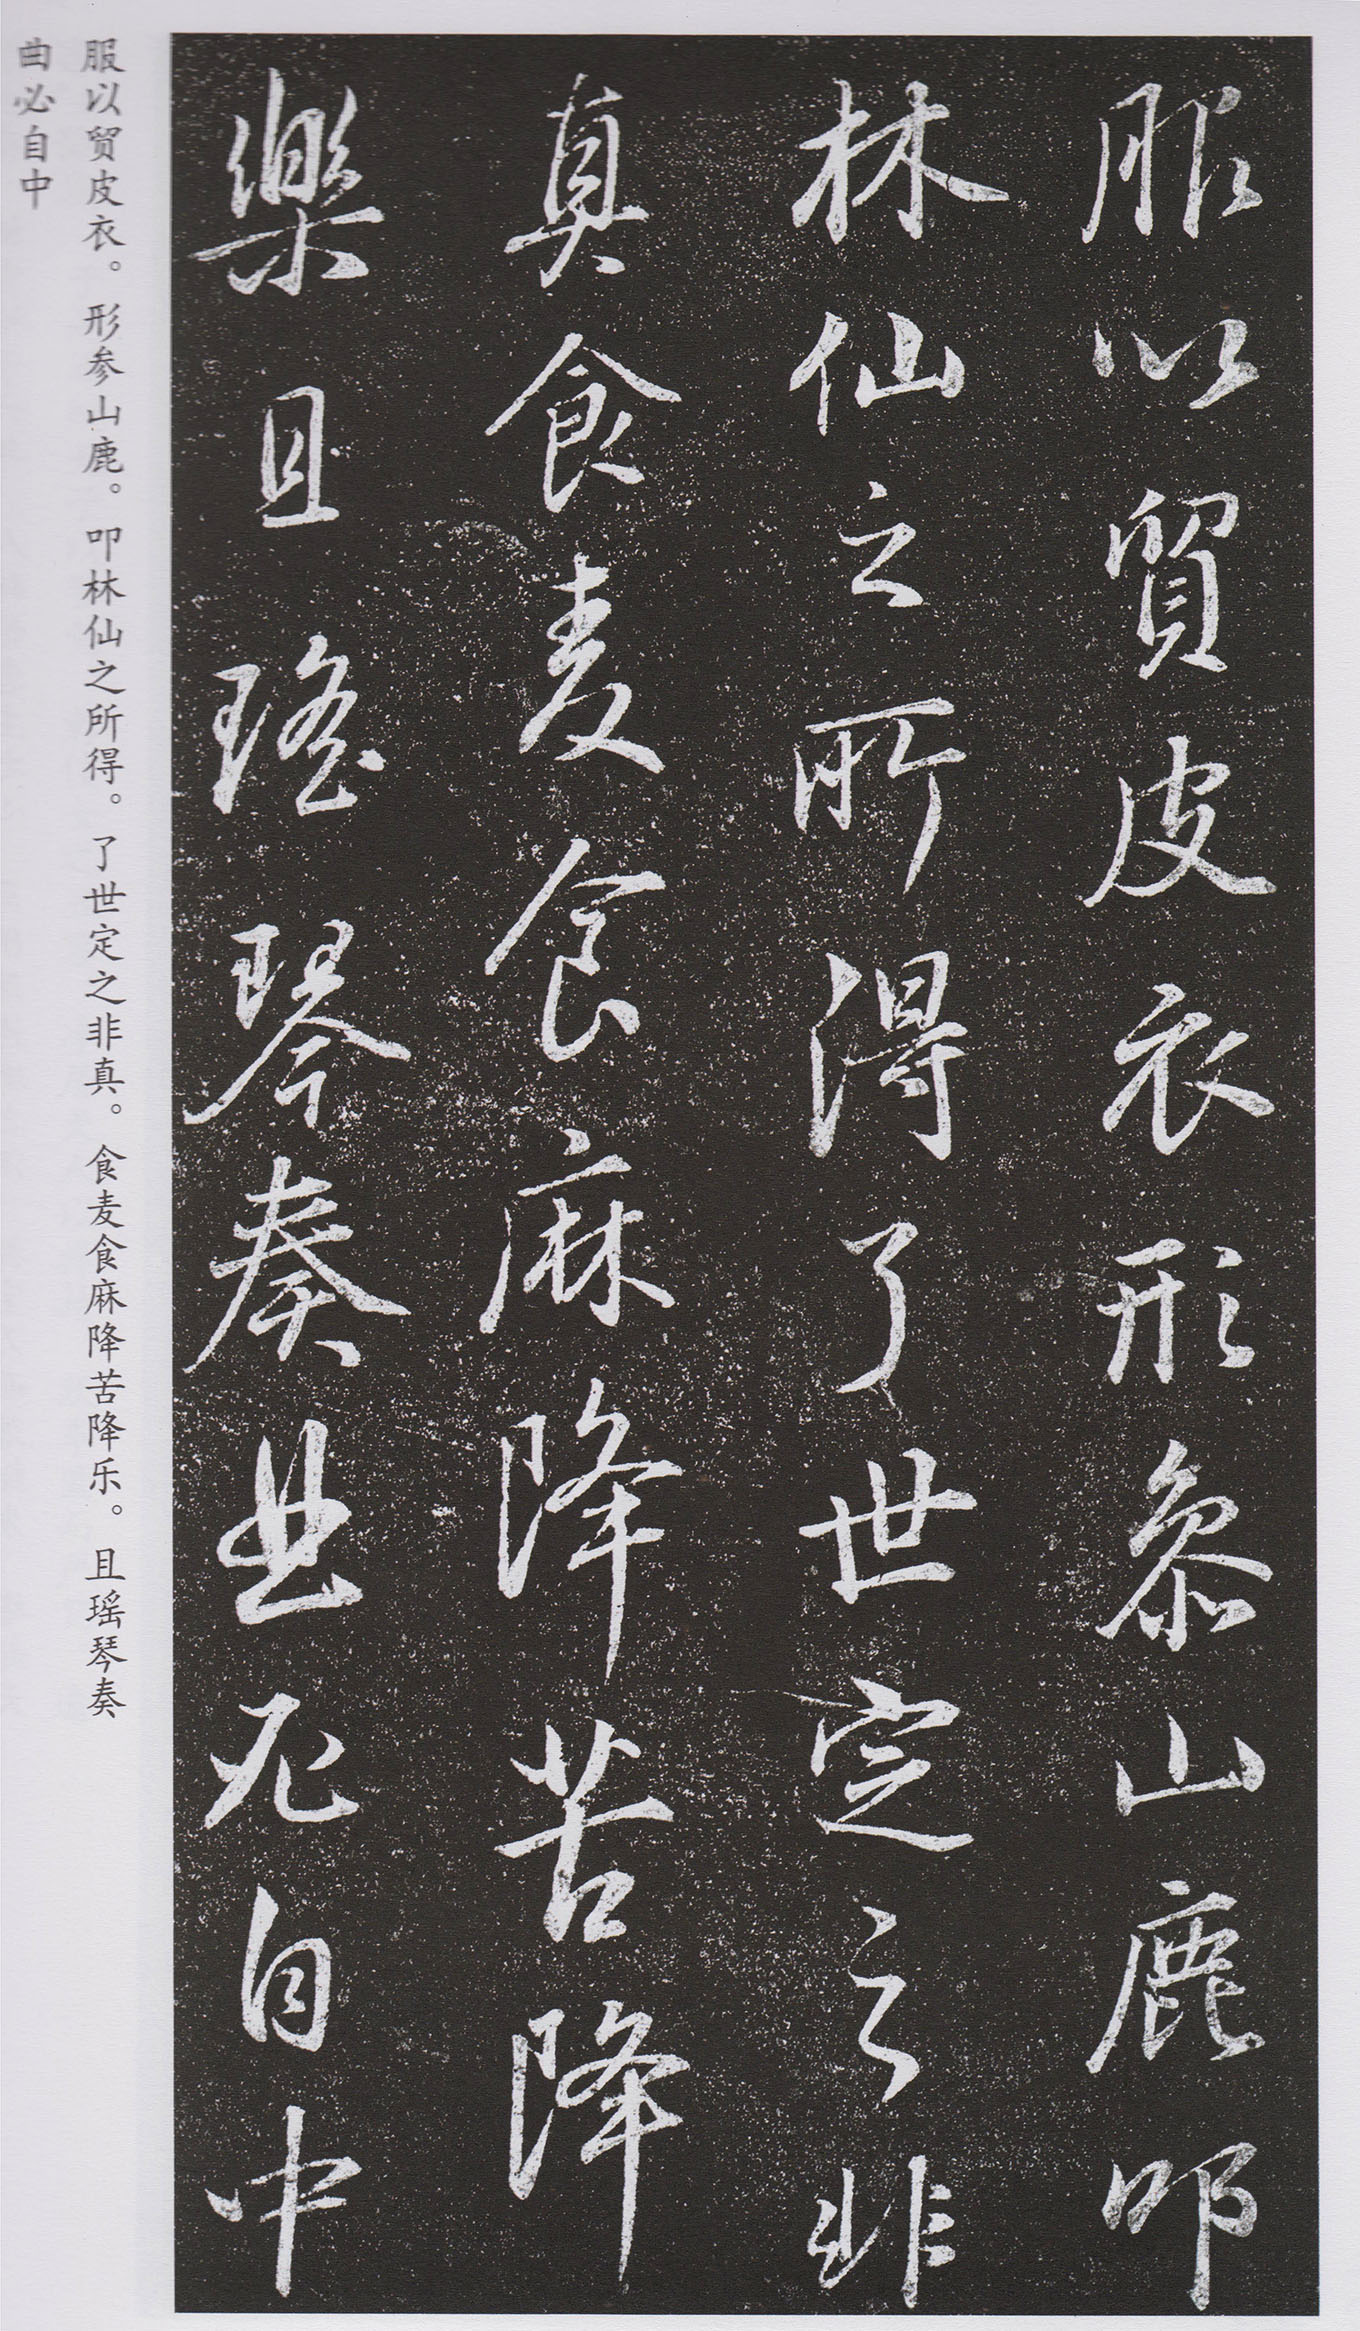 服以貿皮衣形參山鹿叩
林仙之所得了世定之非
真食麦食麻降苦降
樂且瑤琴奏曲必自中
服以贸皮衣。形参山鹿。叩林仙之所得。了世定之非真。食麦食麻降苦降乐。且瑶琴奏
曲必自中